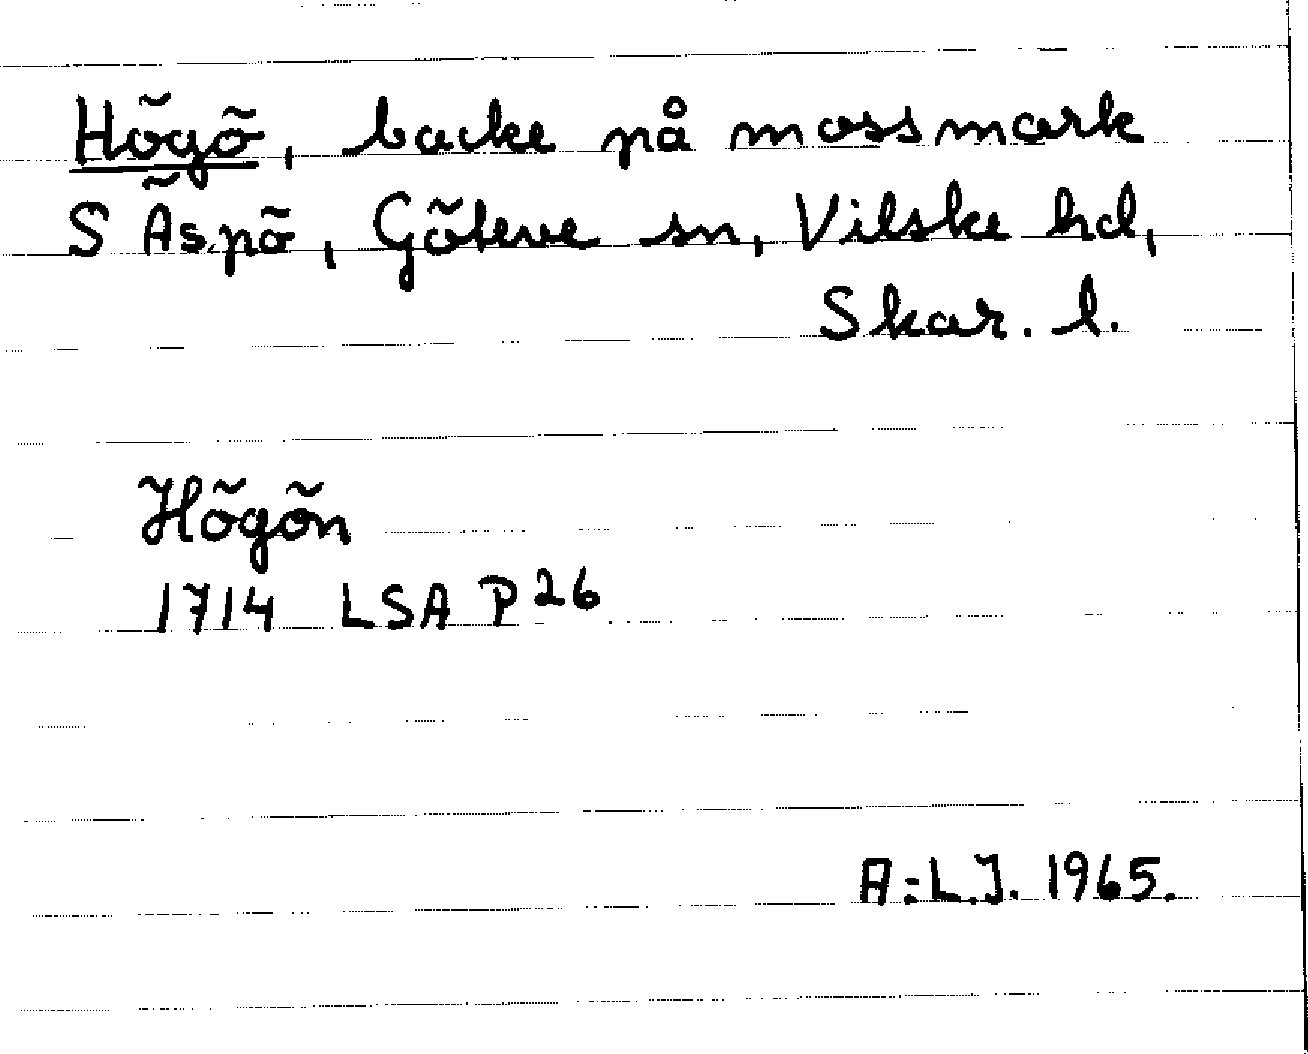 Högö, backe på mossmark
S Äspö, Göteve sn, Vilske hd,
Skar. l.
Högön
1714 LSA P 26
A:L.J. 1965.